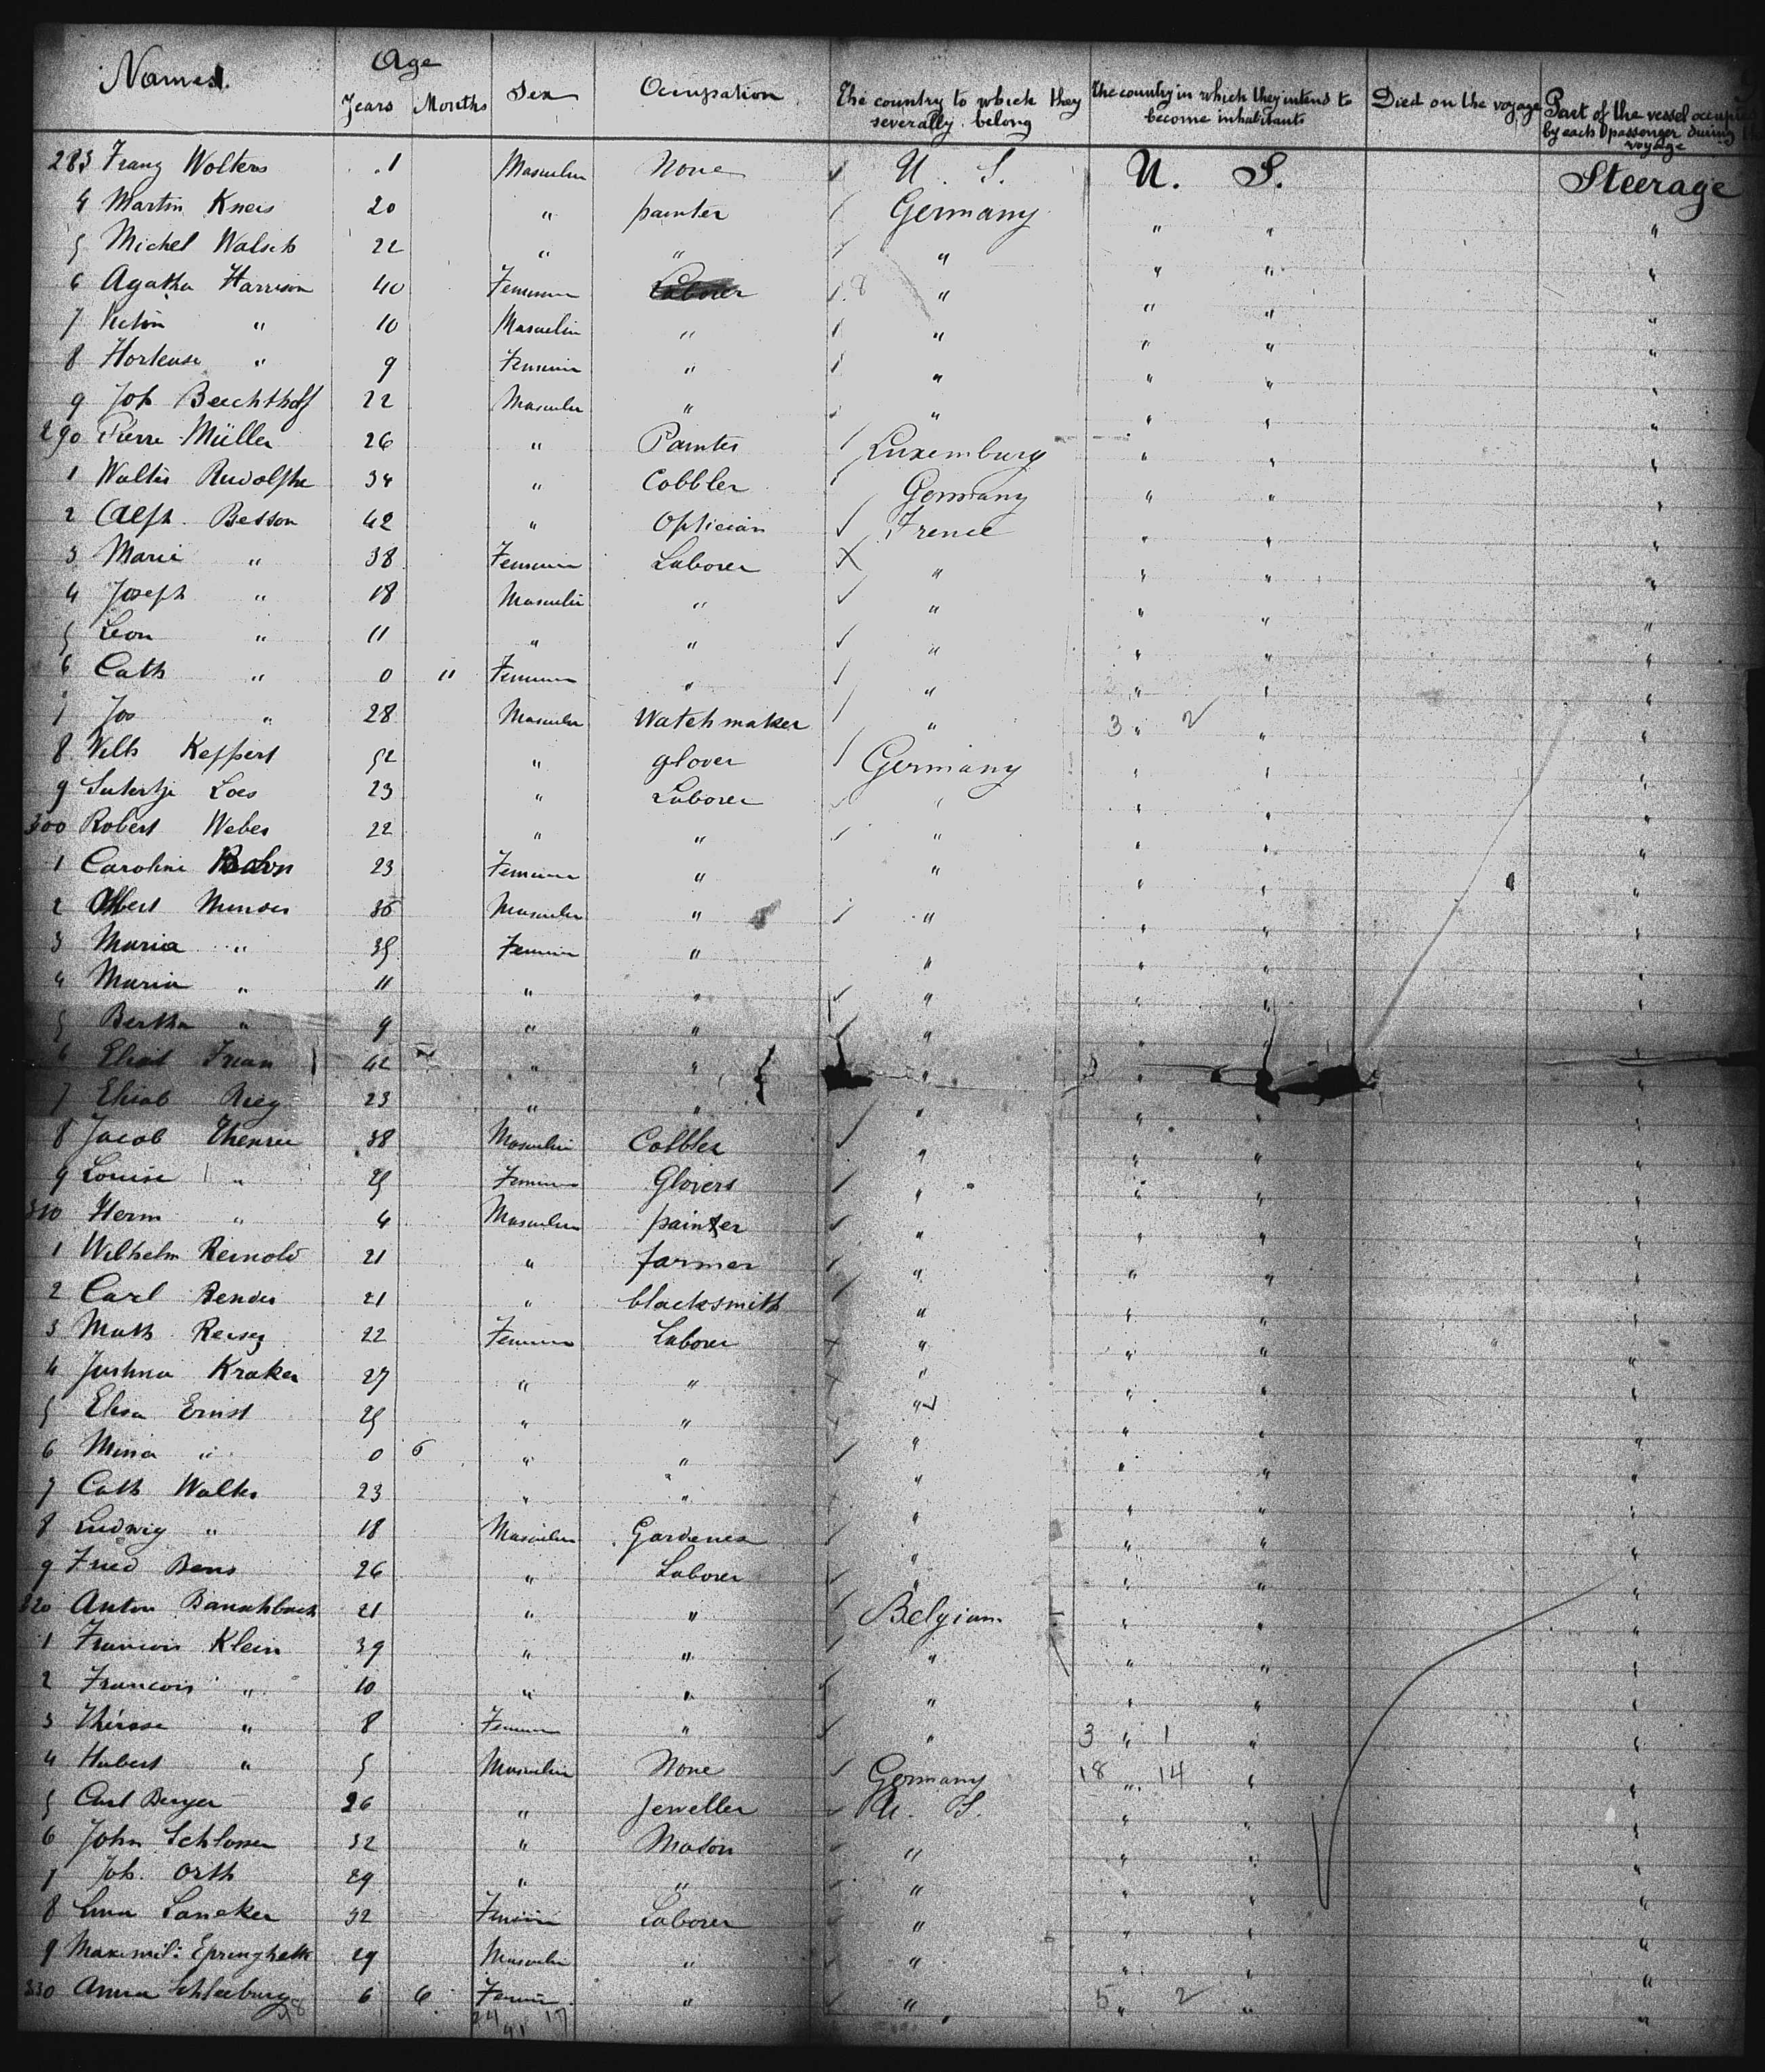 Names. Age Sex Occupation The country to which they severally belong The country in which they intend to become inhabitants Died on the voyage Part of the vessel occupied by each passenger during the voyage
Years Months
283 Franz Wolters 1 Masculin None U. S. U. S. Steerage
4 Martin Kneis 20 " painter Germany " " "
5 Michel Walsch 22 " " " " " "
6 Agatha Harrison 40 Feminin Laborer " " " "
7 " 10 Masculin " " " " "
8 Hortense " 9 Feminin " " " " "
9 Joh Bechtholf 22 Masculin " " " " "
290 Pierre Müller 26 " Painter Luxemburg " " "
1 Walter Rudolphe 34 " Cobbler Germany " " "
2 Alph. Besson 42 " Optician Frence " " "
3 Marie " 38 Feminin Laborer " " " "
4 Joseph " 18 Masculin " " " " "
5 Leon " 11 " " " " " "
6 Cath " 0 11 Feminin " " " " "
7 Jos " 28 Masculin Watchmaker " 3 " 2 " "
8 Wilh Keppert 52 " glover Germany " " "
9 Loes 23 " Laborer " " " "
300 Robert Weber 22 " " " " " "
1 Caroline 23 Feminin " " " " "
2 Albert Menses 36 Masculin " " " " "
3 Maria " 35 Feminin " " " " "
4 Maria " 11 " " " " " "
5 Bertha " 9 " " " " " "
6 42 " " " " " "
7 Elisab 23 " " " " " "
8 Jacob Thenrie 38 Masculin Cobbler " " " "
9 Louise " 25 Feminin Glovers " " " "
310 Herm " 4 Masculin painter " " " "
1 Wilhelm Reinold 21 " farmer " " " "
2 Carl Bender 21 " blacksmith " " " "
3 Math 22 Feminin Laborer " " " "
4 Kraker 27 " " " " " "
5 Elisa Ernst 25 " " " " " "
6 Mina " 0 6 " " " " " "
7 Cath Walter 23 " " " " " "
8 Ludwig " 18 Masculin Gardener " " " "
9 Fried Bens 26 " Laborer " " " "
320 Anton 21 " " Belgium " " "
1 Francois Klein 39 " " " " " "
2 Francois " 10 " " " " " "
3 Thérese " 8 Feminin " " 3 " 1 " "
4 Hubert " 5 Masculin None Germany 18 " 14 " "
5 Carl Berger 26 " Jeweller U. S. " " "
6 John Schlosser 32 " Mason " " " "
7 Joh. Orth 29 " " " " " "
8 Lina Lancker 32 Feminin Laborer " " " "
9 Maximil: 29 Masculin " " " " "
330 Anna Schleeburg 6 6 Feminin " " 5 " 2 " "
24 17
41